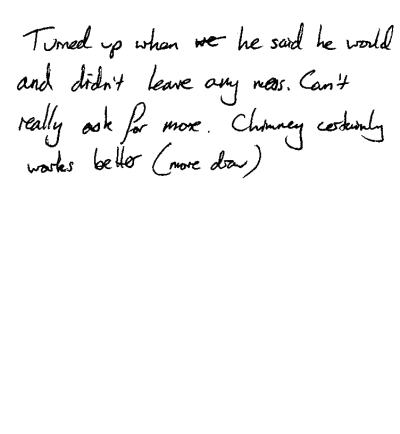 Turned up when he said he would
and didn't leave any mess. Can't
really ask for more. Chimney certainly
works better (more draw)